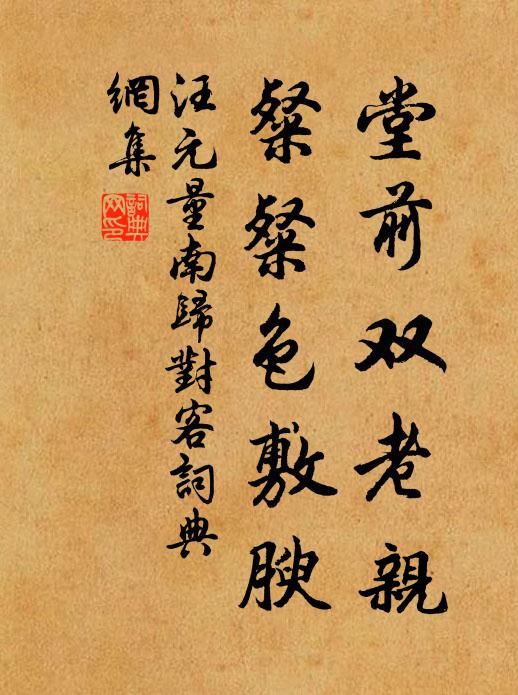 堂前双老親
粲粲色敷腴
汪元量南歸對客詞典
網集
詞典網印